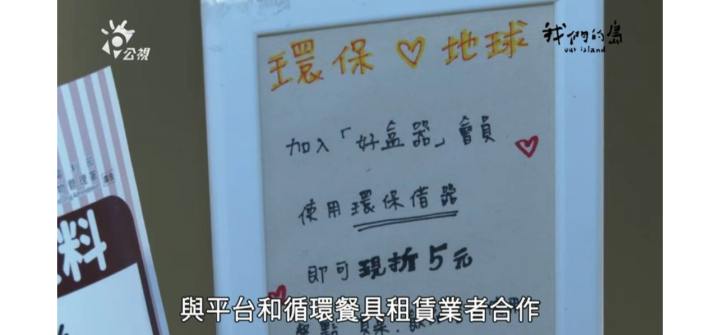 公視
我們的島
our island
環保♡地球
加入「好盒器」會員
使用環保借器
即可現折5元
與平台和循環餐具租賃業者合作
料